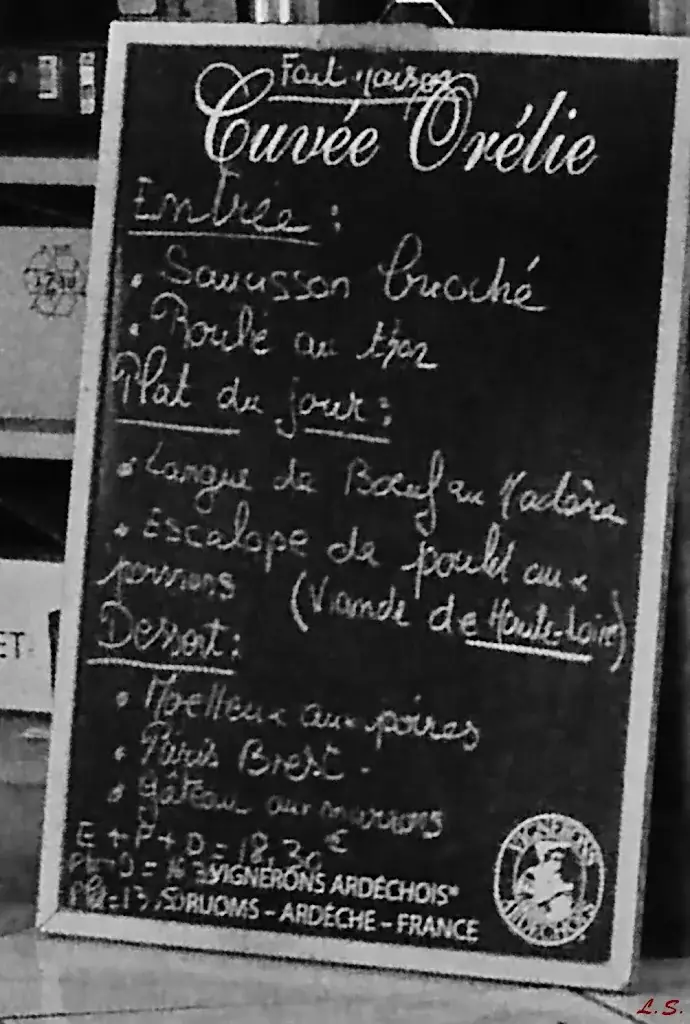 Fait maison
Cuvée Orélie
Entrée :
• Saucisson brioché
• Roulé au thon
Plat du jour :
• Langue de Boeuf au Madère
• Escalope de poulet aux
poivrons (Viande de Haute-Loire)
Dessert :
• Moelleux aux poires
• Paris Brest -
• gâteau aux marrons
E + P + D = 18,30 €
VIGNERONS ARDÉCHOIS®
= 13,50
RUOMS – ARDÈCHE – FRANCE
VIGNERONS
ARDÉCHOIS
ET-
L.S.